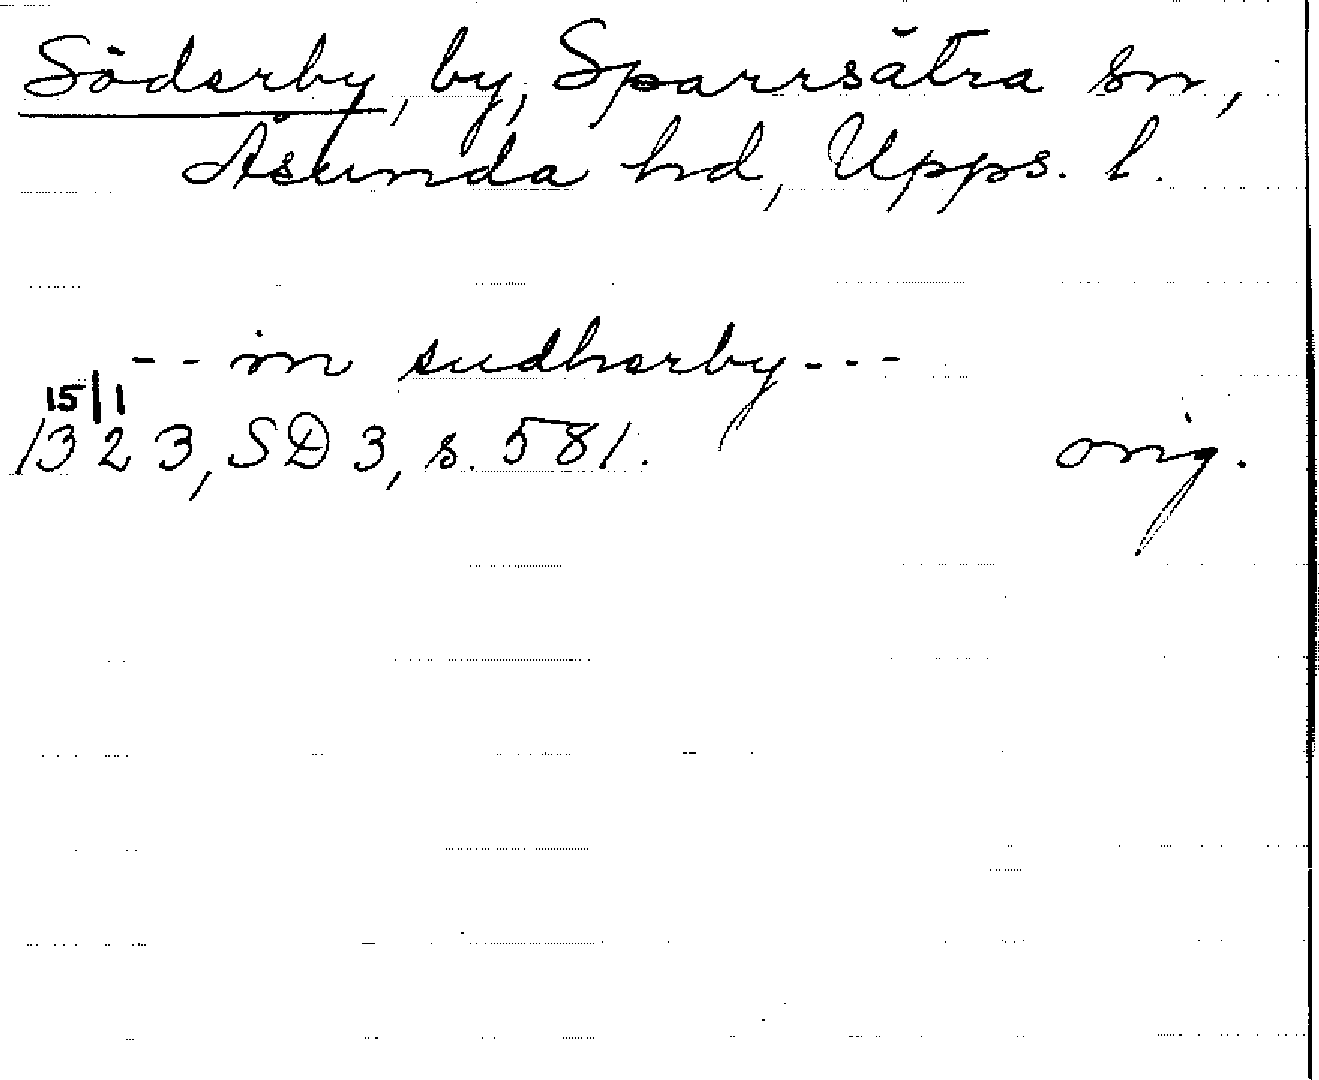 Söderby, by, Sparrsätra sn,
Åsunda hd, Upps. l.
-- in sudherby---
15/1
1323, SD 3, s. 581. orig.